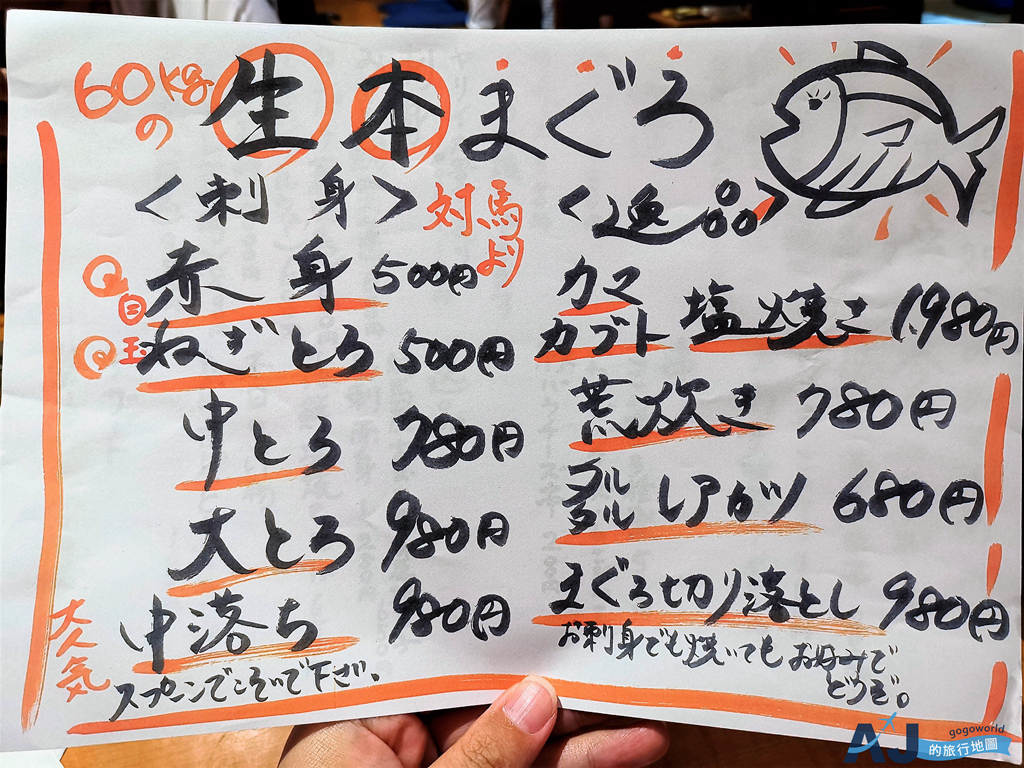 60kgの
生本まぐろ
<刺身>
対馬より
赤身 500円
ねぎとろ 500円
中とろ 780円
大とろ 980円
大人気
中落ち 980円
スプーンでこそいで下さい。
<逸品>
カマ
カブト 塩焼き 1,980円
荒炊き 780円
タルタル レアカツ 680円
まぐろ切り落とし 980円
お刺身でも焼いてもお好みで
どうぞ。
AJ
gogoworld
的旅行地圖